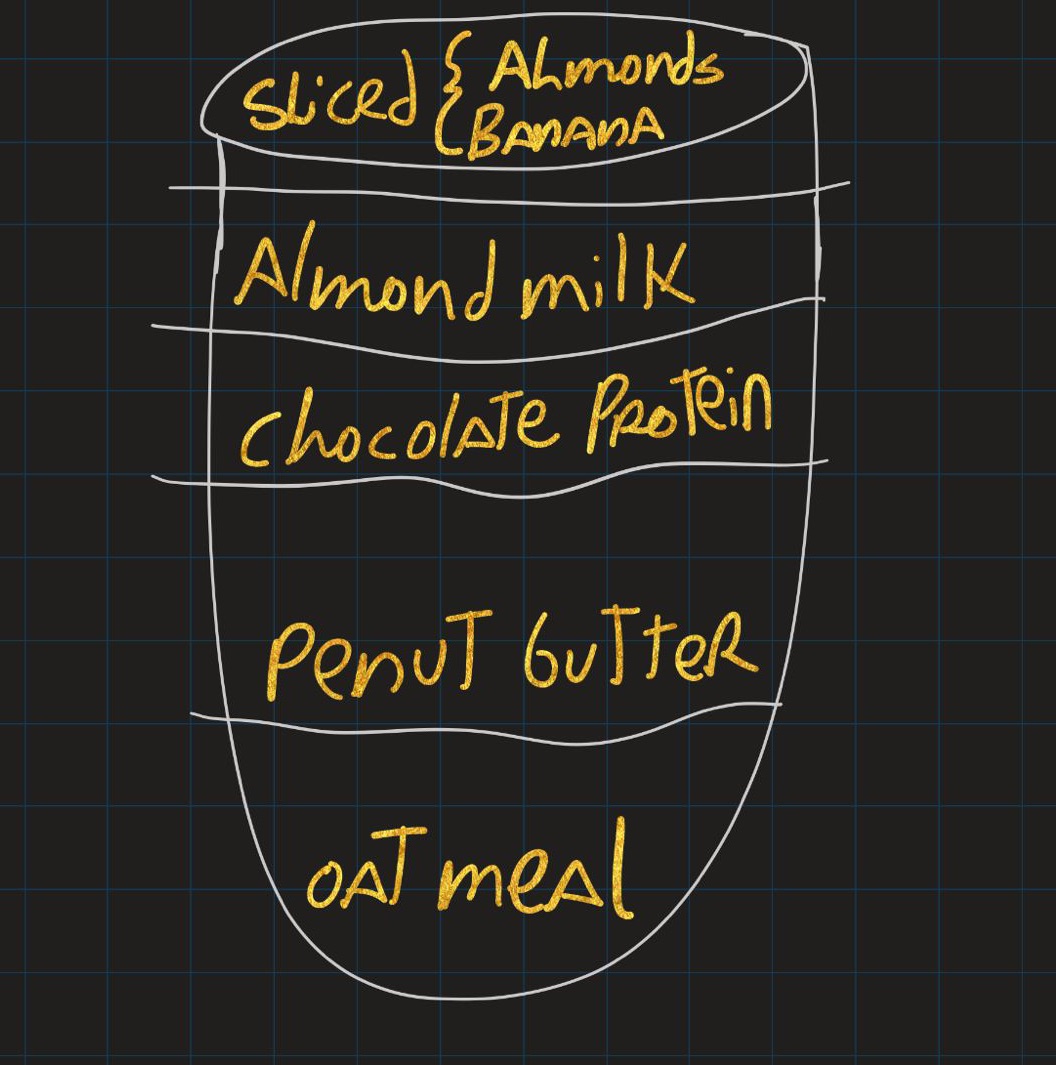 Sliced { Almonds
{ Banana
Almond milk
Chocolate Protein
Penut butter
oat meal